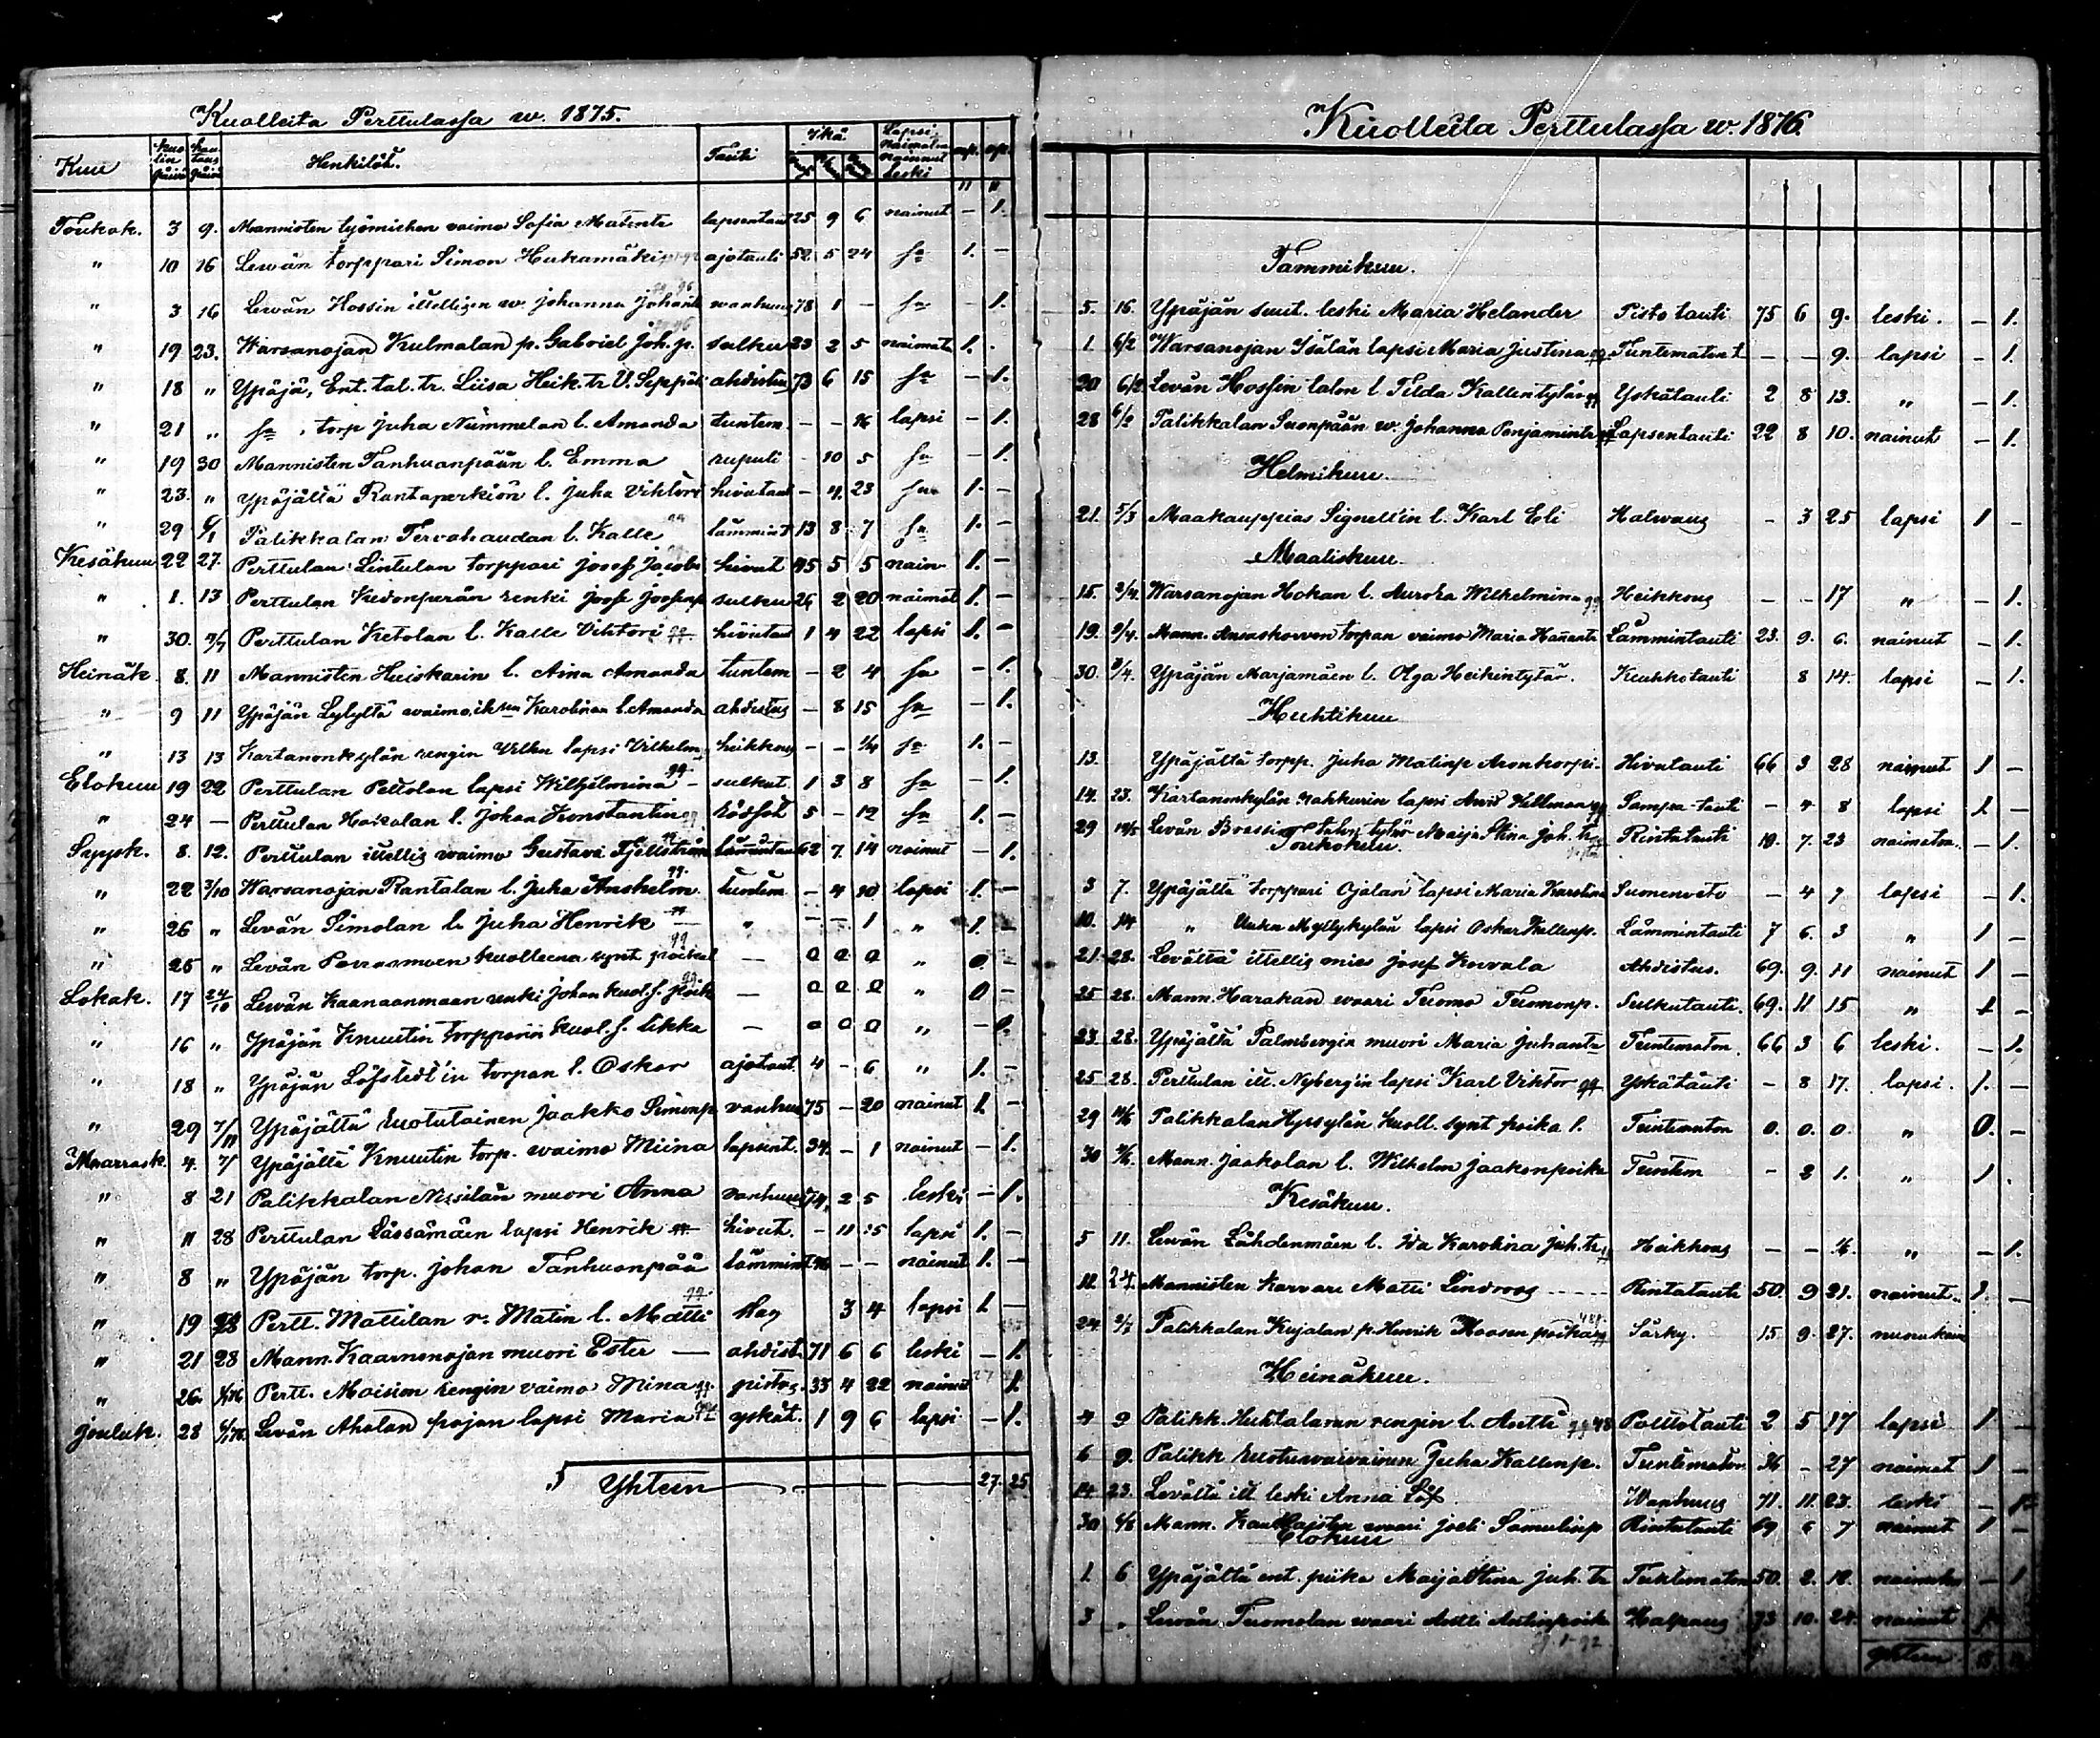 Kuolleita Perttulassa w. 1875.
Kuu Kuolin päivä Hautaus päivä Henkilöt. Tauti Ikä Lapsi naimaton nainut leski mp. vp.
Toukok. 3 9. Mannisten työmiehen vaimo Sofia Matintr lapsentaut 25 9 6 nainut – 1.
" 10 16 Lewän torppari Simon Hukamäki ajotauti 52 5 24 sa 1. –
" 3 16 Lewän Hossin itellisen w. Johanna Johantr wanhuus 78 1 – sa – 1.
" 19 23. Warsanojan Kulmalan p. Gabriel Joh. p. sulku 23 2 5 naimato 1. .
" 18 " Ypäjä, Ent. tal. tr. Liisa Heik. tr V. Seppäl ahdistus 73 6 15 sa – 1.
" 21 " sa . torp Juha Nummelan l. Amanda tuntem. – – 16 lapsi – 1.
" 19 30 Mannisten Tanhuanpään l. Emma rupuli – 10 5 sa – 1.
" 23. " Ypäjältä Rantaperkiön l. Juha Viktori hivutaut – 4 23 sa 1. –
" 29 6/1 Palikkalan Tervahaudan l. Kalle lämmint 13 8 7 sa 1. –
Kesäkuu 22 27. Perttulan Lintulan torppari Josef Jacobs hivut 45 5 5 nain 1. –
" 1. 13 Perttulan Kedonperän renki Josef Josefinp sulku 26 2 20 naimat 1. –
" 30. 4/7 Perttulan Ketolan l. Kalle Viktori hivutau 1 4 22 lapsi 1. –
Heinäk. 8. 11 Mannisten Huiskarin l. Aina Amanda tuntem – 2 4 sa – 1.
" 9 11 Ypäjän Lylyltä waimoiksen Karolinan l. Amanda ahdistus – 8 15 sa – 1.
" 13 13 Kartanonkylän rengin Vilhu lapsi Vilhelm heikkous – – 1/4 sa 1. –
Elokuu 19 22 Perttulan Peltolan lapsi Wilhelmina – sulkut. 1 3 8 sa – 1.
" 24 – Perttulan Hakalan l. Johan Konstantin rödsot 5 – 12 sa 1. –
Syysk. 8. 12. Perttulan itellis waimo Gustava Fjellström lämmintaut 62 7 14 nainut – 1.
" 22 3/10 Warsanojan Rantalan l. Juha Anshelm tuntem – 4 10 lapsi 1. –
" 26 " Levän Simolan l. Juha Henrik " – – 1 " 1. –
" 25 " Levän Porrasmaen kuolleena synt poikal – 0 0 0 " 0 –
Lokak. 17 24/10 Lewän Kaanaanmaan renki Johan kuol. s. poik – 0 0 0 " 0 –
" 16 " Ypäjän Knuutin torpparin kuol. s. likka – 0 0 0 " – 0.
" 18 " Ypäjän Löfstedt'in torpan l. Oskar ajotaut. 4 – 6 " 1. –
" 29 7/11 Ypäjältä Ruotulainen Jaakko Simonp. vanhuu 75 – 20 nainut 1 –
Maarrask. 4. 7/ Ypäjältä Knuutin torp. waimo Miina lapsint. 34. – 1 nainut – 1.
" 8 21 Palikkalan Nissilän muori Anna vanhuus 74, 2 5 leski – 1.
" 11 28 Perttulan Lässämäen lapsi Henrik hivut. – 11 15 lapsi 1. –
" 8 " Ypäjän torp. Johan Tanhuanpää lämmint 46 – – nainut 1. –
" 19 28 Pertt. Mattilan r. Matin l. Matti Slag 3 4 lapsi 1 –
" 21 28 Mann. Kaarnonojan muori Ester — ahdist. 71 6 6 leski – 1.
" 26. 1/1 76 Pertt. Moision rengin vaimo Mina pistos. 33 4 22 nainut 1.
Jouluk. 28 6/1 76. Levän Aholan pajan lapsi Maria yskät. 1 9 6 lapsi – 1.
Yhteen 27. 25
Kuolleita Perttulassa w. 1876.
Tammikuu.
5. 16. Ypäjän suut. leski Maria Helander Pisto tauti 75 6 9. leski. – 1.
1. 6/2 Warsanojan Isätän lapsi Maria Justina Tuntematon t – – 9. lapsi – 1.
20 6/2 Levän Hossin talon l. Tilda Kallentytär Yskätauti 2 8 13. " – 1.
28 6/2 Palikkalan Suonpään w. Johanna Penjamintr Lapsentauti 22 8 10. nainut – 1.
Helmikuu.
21. 5/3 Maakauppias Signell'in l. Karl Eli Halwaus – 3 25 lapsi 1 –
Maaliskuu.
15. 2/4. Warsanojan Hokan l. Aurora Wilhelmina Heikkous – – 17 " – 1.
19. 2/4. Mann. torpan vaimo Maria Lämmintauti 23. 9. 6. nainut – 1.
30. 2/4. Ypäjän Marjamäen l. Olga Heikintytär. Keuhkotauti 8 14. lapsi – 1.
Huhtikuu
13. Ypäjältä torpp. Juha Matinp Aronkorpi. Hivutauti 66 3 28 nainut 1 –
14. 23. Kartanonkylän rahkurin lapsi Hellman Sampa tauti – 4 8 lapsi 1 –
29 14/5 Levän talon tytär Maija Stina Joh. tr Rintatauti 19. 7. 23 naimaton. – 1.
Toukokuu.
3 7. Ypäjältä torppari Ojalan lapsi Maria Karolina Suonenveto – 4 7 lapsi – 1.
10. 14 " Uuden Myllykylän lapsi Oskar Kallenp. Lämmintauti 7 6. 3 " 1 –
21. 28. Levältä itellis mies Josef Kuvala Ahdistus. 69. 9. 11 nainut 1 –
25 28. Mann. Harakan waari Tuomo Tuomonp. Sulkutauti. 69. 11 15 " 1 –
23. 28. Ypäjältä Palmbergin muori Maria Juhantr Tuntematon. 66 3 6 leski. – 1.
25 28. Perttulan itt. Nybergin lapsi Karl Viktor Yskätauti – 8 17. lapsi. 1. –
29 11/6 Palikkalan Hyssylän kuoll. synt poika l. Tuntematon 0. 0. 0. " 0. –
30 11/6. Mann. Jaakolan l. Wilhelm Jaakonpoika Tuntem – 2 1. " 1 .
Kesäkuu.
5 11. Lewän Lähdenmäen l. Ida Karolina Joh. tr Heikkous – – " – 1.
11. 24. Mannisten Karvari Matti Lindroos Rintatauti 50. 9 21. nainut. 1. –
24. 2/7 Palikkalan Kujalan p. Henrik Moosen poika Särky. 15 9. 27.
Heinäkuu.
4 9 Palikk. Huhtalavan rengin l. Antti Polttotauti 2 5 17 lapsi 1 –
6 9. Palikk Ruotuvaivainen Juha Kallenp. Tuntematon 36 – 27 naimat 1 –
14. 23. Levältä itt leski Anna Löf Wanhuus 71. 11. 23. leski – 1
30 6/8 Mann. waari Joeli Samulinp Rintatauti 69 6 7 nainut 1 –
Elokuu
1. 6 Ypäjältä ent. piika Maija Stina Juh. tr Tuntematon 50. 2. 12. naimaton – 1
3 " Lewän Tuomolan waari Antti Antinpoik Halpaus 73 10. 24. nainut 1
yhteen